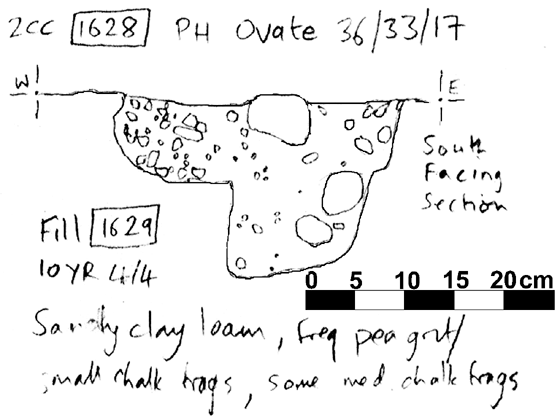 2CC 1628 PH Ovate 36/33/17
W E
South
Facing
Section
Fill 1629
10YR 4/4
0 5 10 15 20cm
Sandy clay loam, freq pea grit/
small chalk frags, some med chalk frags